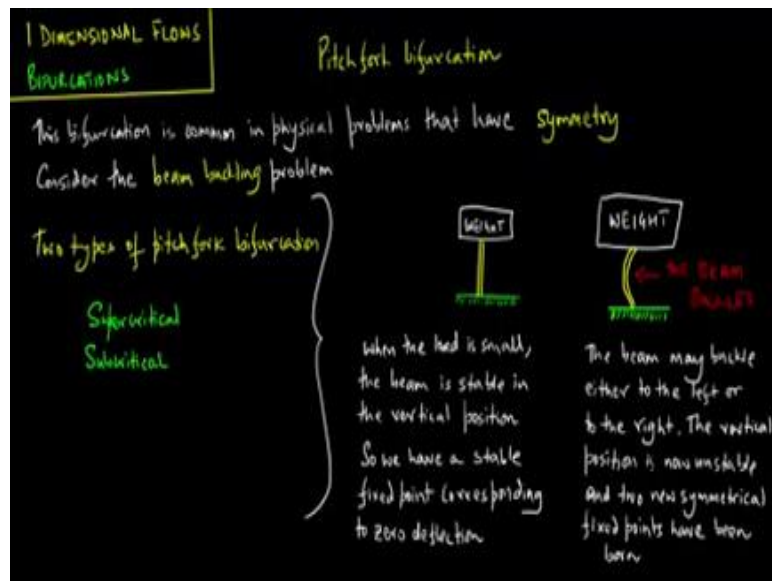 1 DIMENSIONAL FLOWS
BIFURCATIONS
Pitchfork bifurcation
This bifurcation is common in physical problems that have symmetry
Consider the beam buckling problem
Two types of pitchfork bifurcation
Supercritical
Subcritical
WEIGHT
when the load is small,
the beam is stable in
the vertical position
So we have a stable
fixed point corresponding
to zero deflection
WEIGHT
THE BEAM
The beam may buckle
either to the left or
to the right. The vertical
position is now unstable
and two new symmetrical
fixed points have been
born